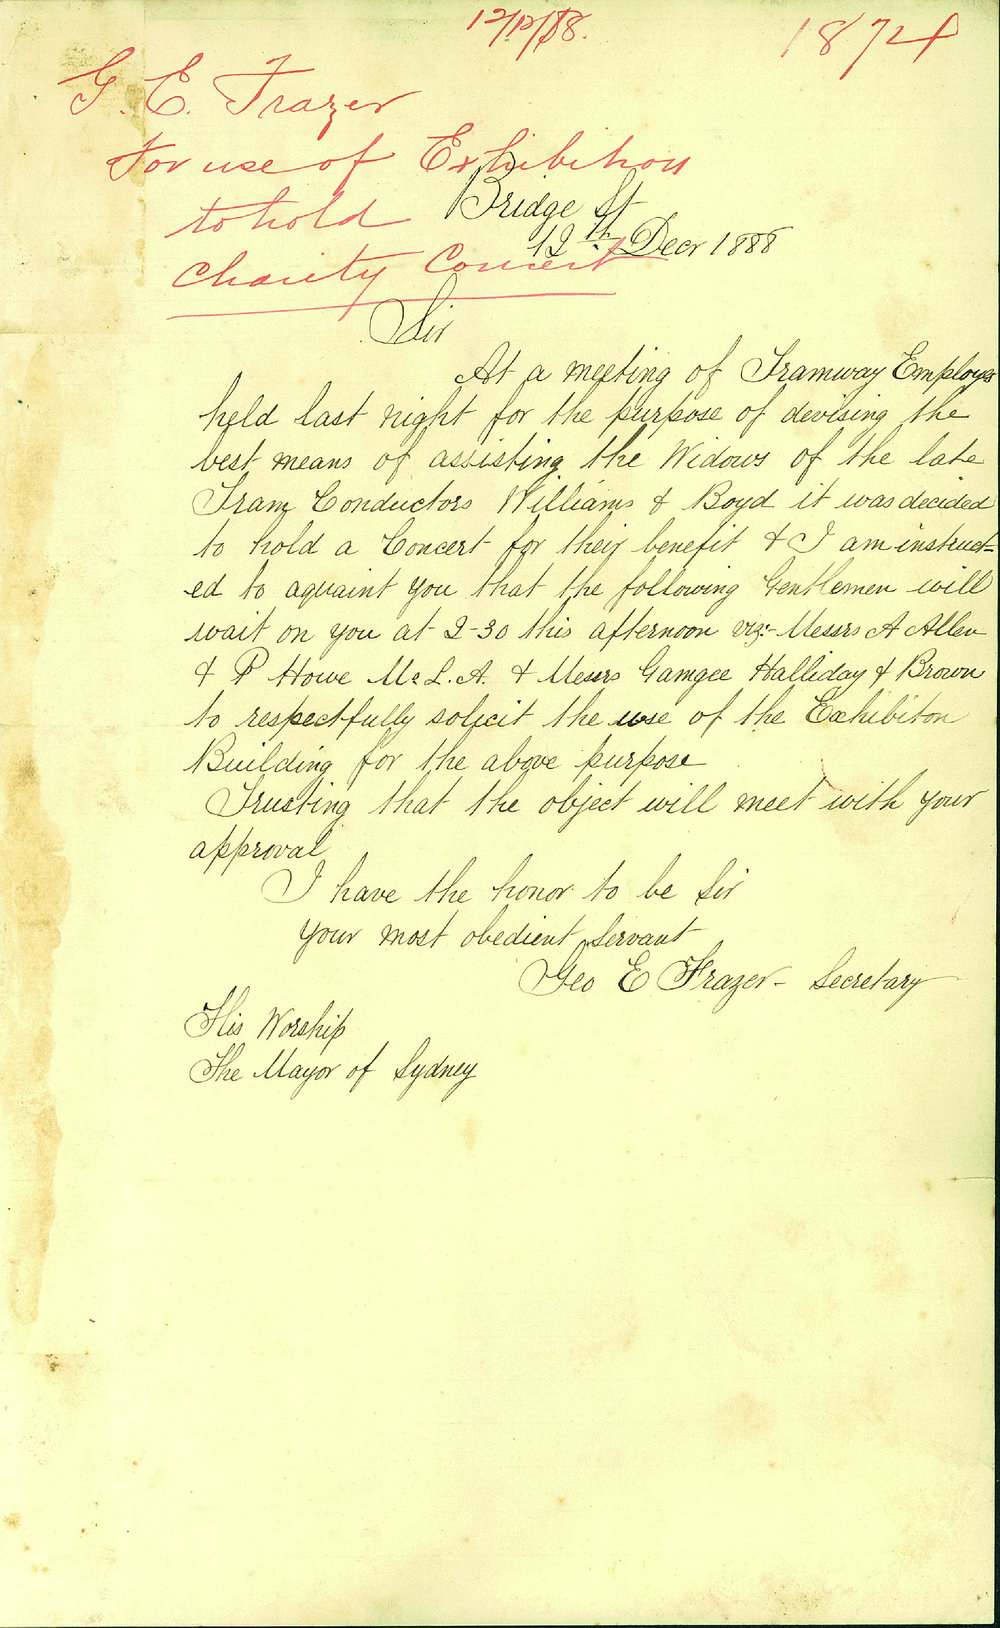 12/12/88.
1874
G. E. Frazer
For use of Exhibition
to hold
Charity Concert
Bridge St
12th Decr 1888
Sir
At a meeting of Tramway Employes
held last night for the purpose of devising the
best means of assisting the Widows of the late
Tram Conductors Williams & Boyd it was decided
to hold a Concert for their benefit & I am instruct-
ed to aquaint you that the following Gentlemen will
wait on you at 2-30 this afternoon viz:- Messrs A Allen
& P Howe Ms L. A. & Messrs Gamgee Halliday & Brown
to respectfully solicit the use of the Exhibiton
Building for the above purpose
Trusting that the object will meet with your
approval
I have the honor to be Sir
your most obedient Servant
Geo E Frazer - Secretary
His Worship
The Mayor of Sydney